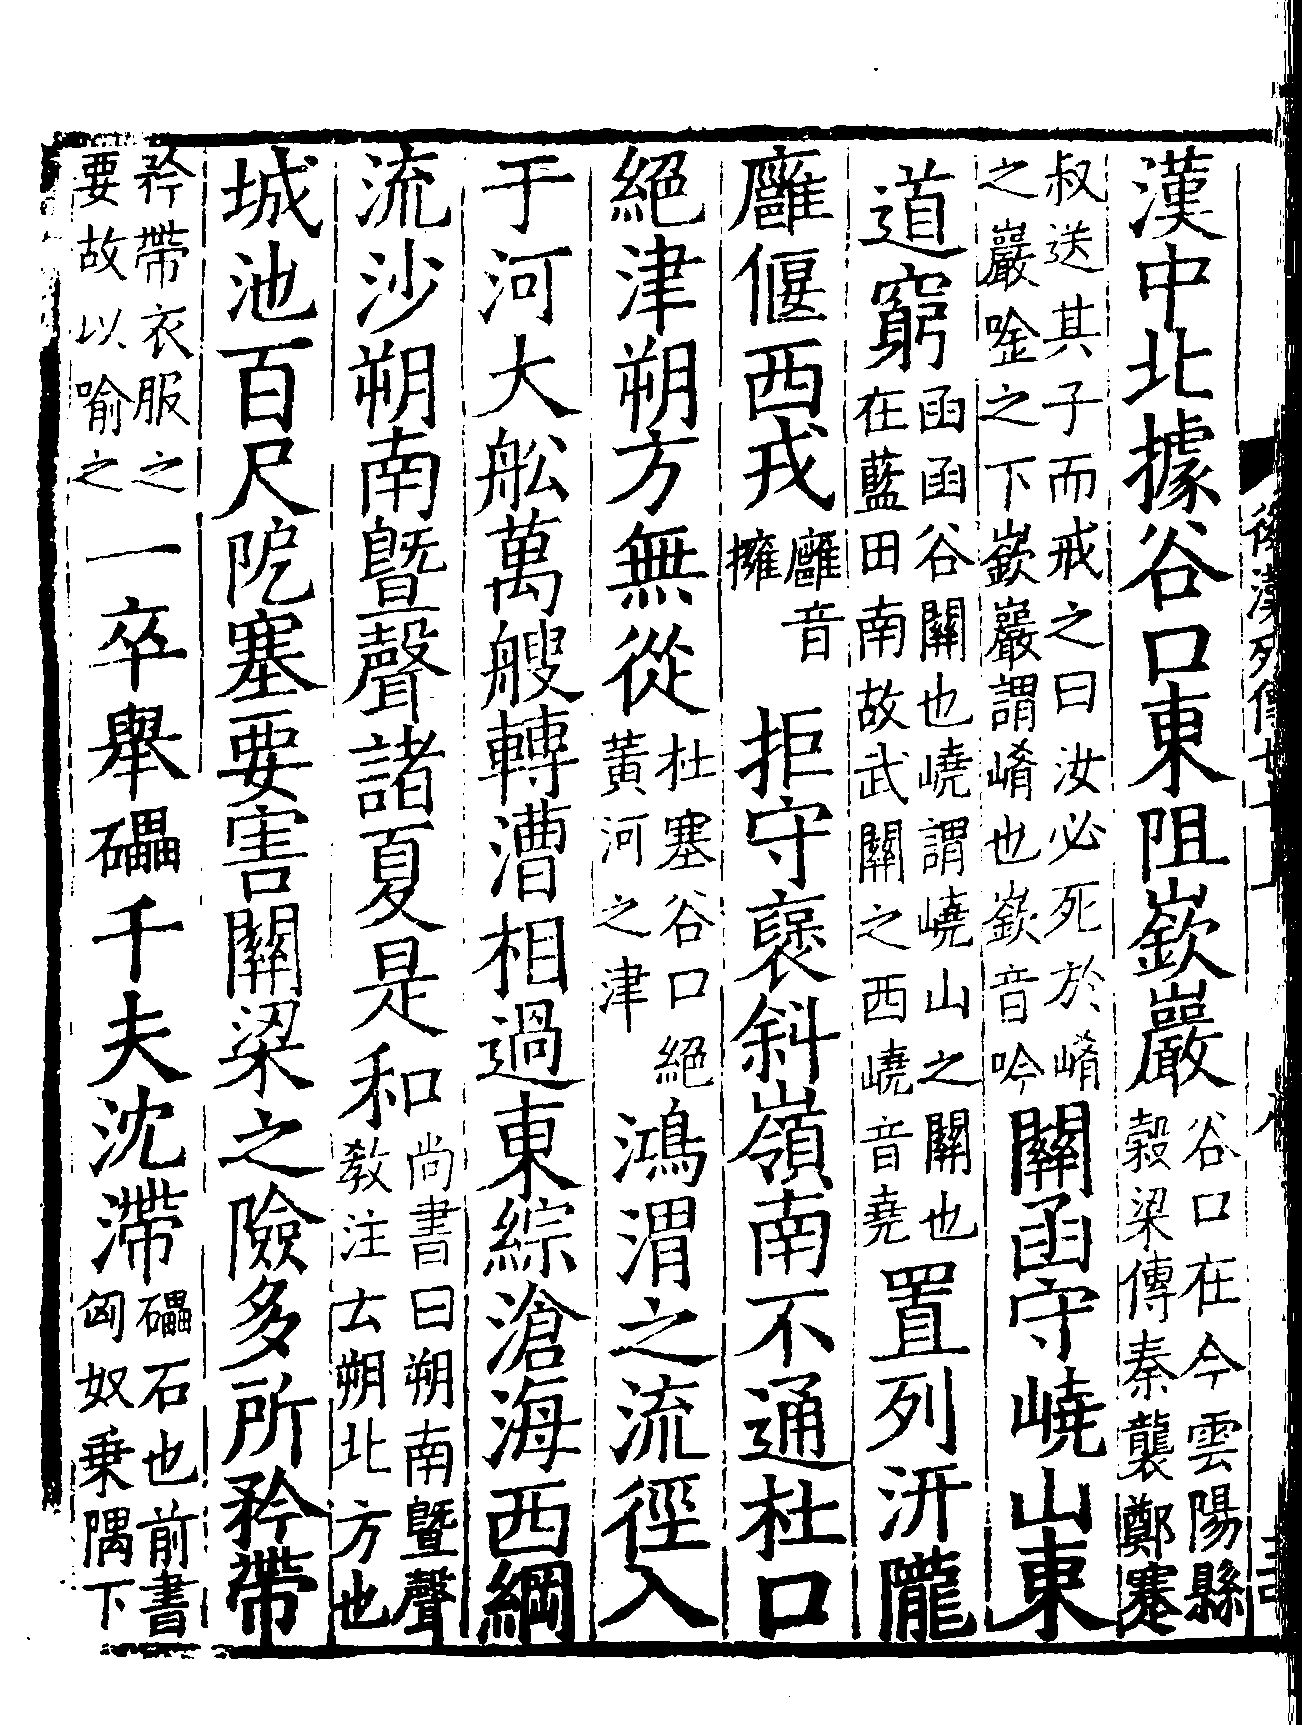 漢中北據谷口東阻嶔巖谷口在今雲陽縣穀梁傳秦襲鄭蹇
叔送其子而戒之曰汝必死於崤之巖唫之下嶔巖謂崤也嶔音吟關函守嶢山東
道窮函函谷關也嶢謂嶢山之關也在藍田南故武關之西嶢音堯置列汧隴
廱偃西戎廱音擁拒守襃斜嶺南不通杜口
絕津朔方無從杜塞谷口絕黃河之津鴻渭之流徑入
于河大舩萬艘轉漕相過東綜滄海西綱
流沙朔南曁聲諸夏是和尚書曰朔南曁聲教注云朔北方也
城池百尺阸塞要害關梁之險多所矜帶
矜帶衣服之要故以喻之一卒舉礧千夫沈滯礧石也前書匈奴乗隅下
後漢列傳七十上